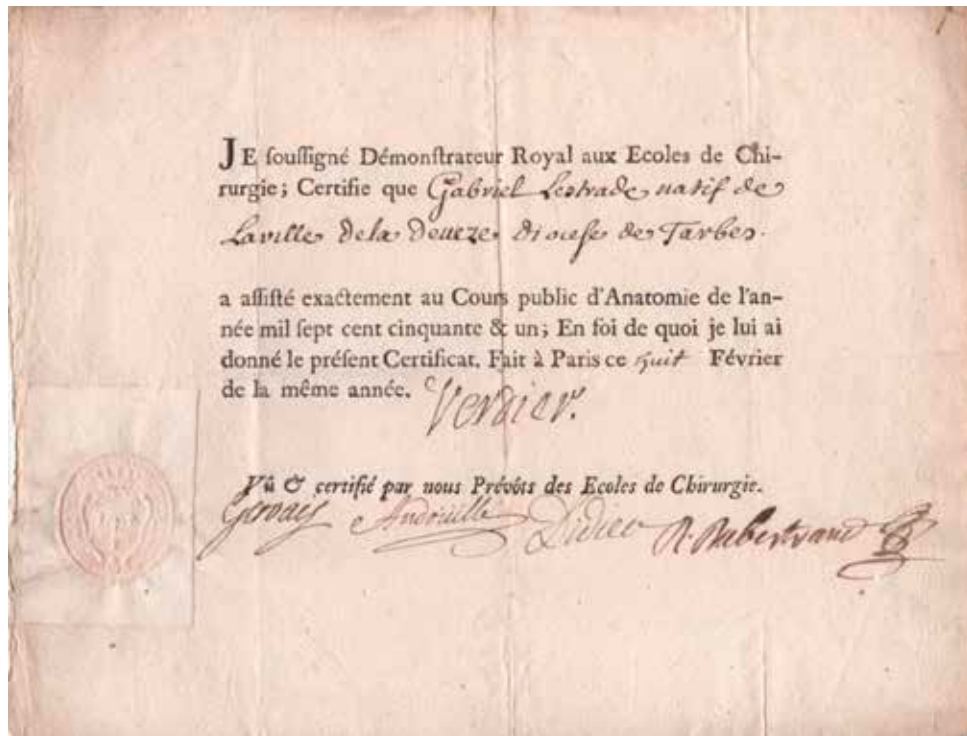 JE souſſigné Démonſtrateur Royal aux Ecoles de Chi-
rurgie; Certifie que Gabriel Lestrade natif de
Laville dela Deveze dioceſe de Tarbes.
a aſſiſté exactement au Cours public d'Anatomie de l'an-
née mil ſept cent cinquante & un; En foi de quoi je lui ai
donné le préſent Certificat. Fait à Paris ce huit Février
de la même année. Verdier.
Vû & certifié par nous Prévôts des Ecoles de Chirurgie.
Gervais Andouillé Didier